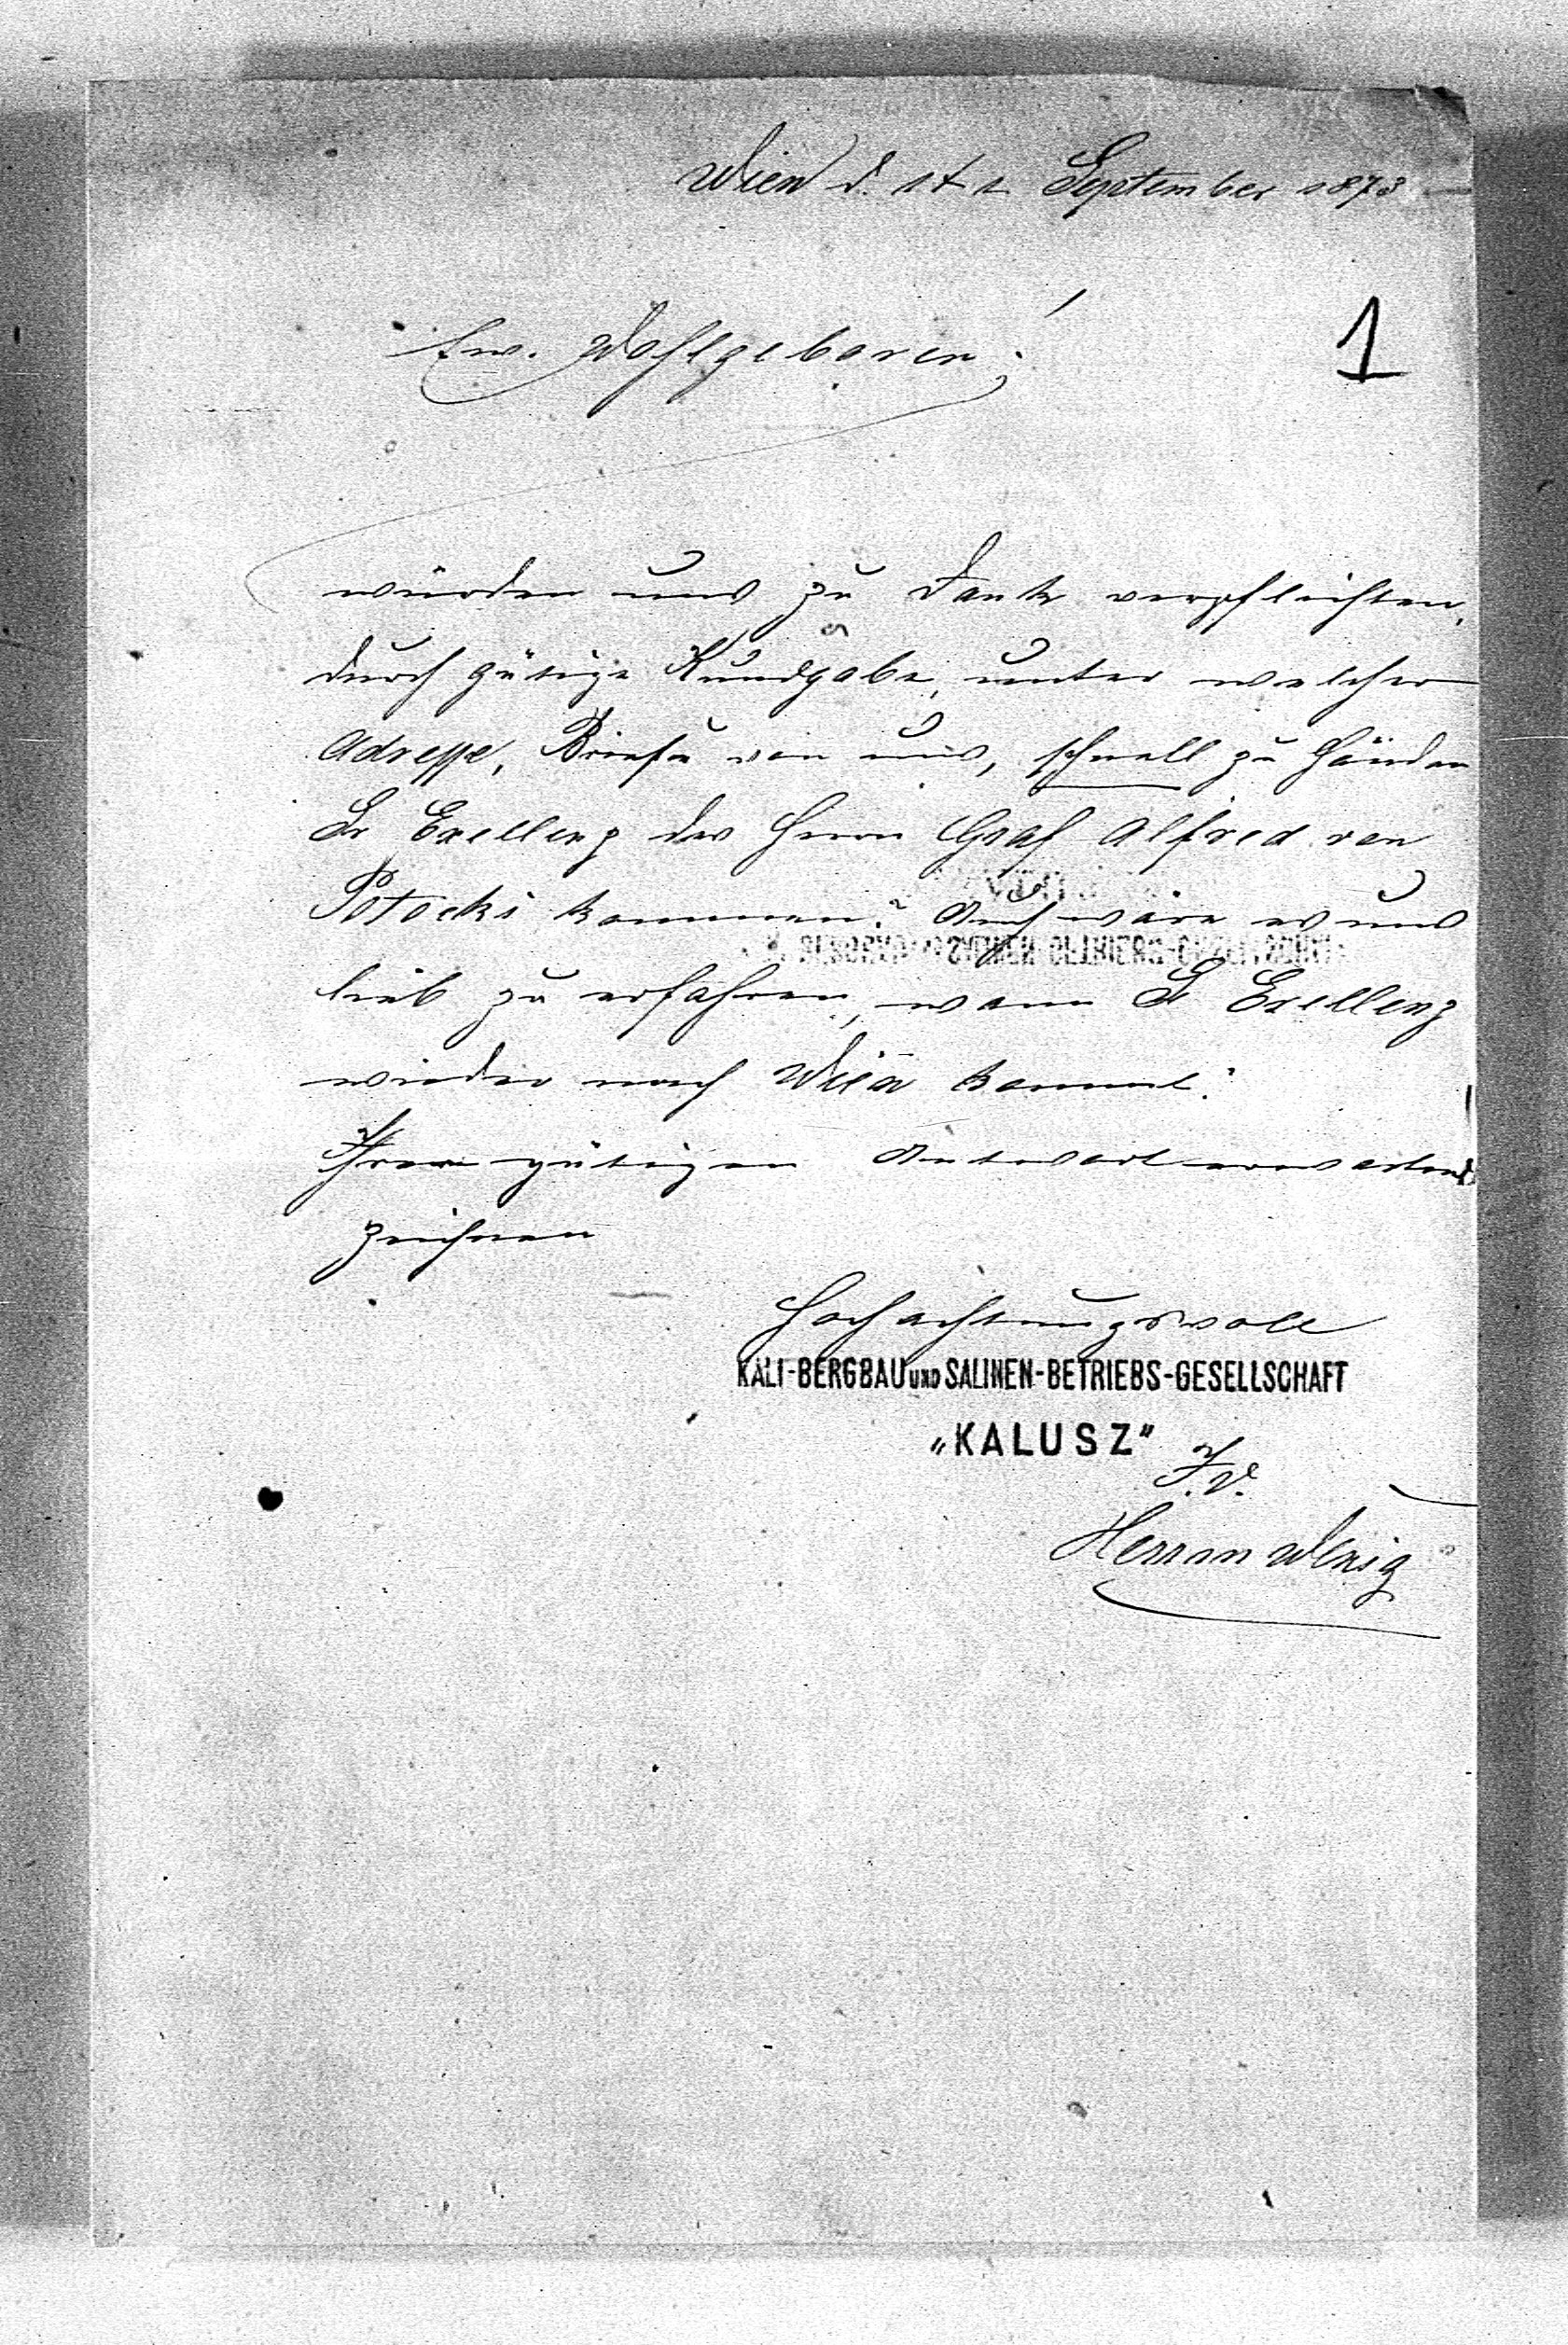 Wien d. September 1873
1
Ew. Wohlgeboren!
würden uns zu Dank verpflichten,
durch gütige Kundgabe, unter welcher
Adresse, Briefe von uns, schnell zu Händen
Sr Exellenz des Herrn Graf Alfred von
Potocki kommen? Auch wäre es uns
lieb zu erfahren, wann Sr Exellenz
wieder nach Wien kommt?
Ihrer gütigen Antwort erwartend
zeichnen
Hochachtungsvoll
KALI-BERGBAU UND SALINEN-BETRIEBS-GESELLSCHAFT
„KALUSZ"
I.V.